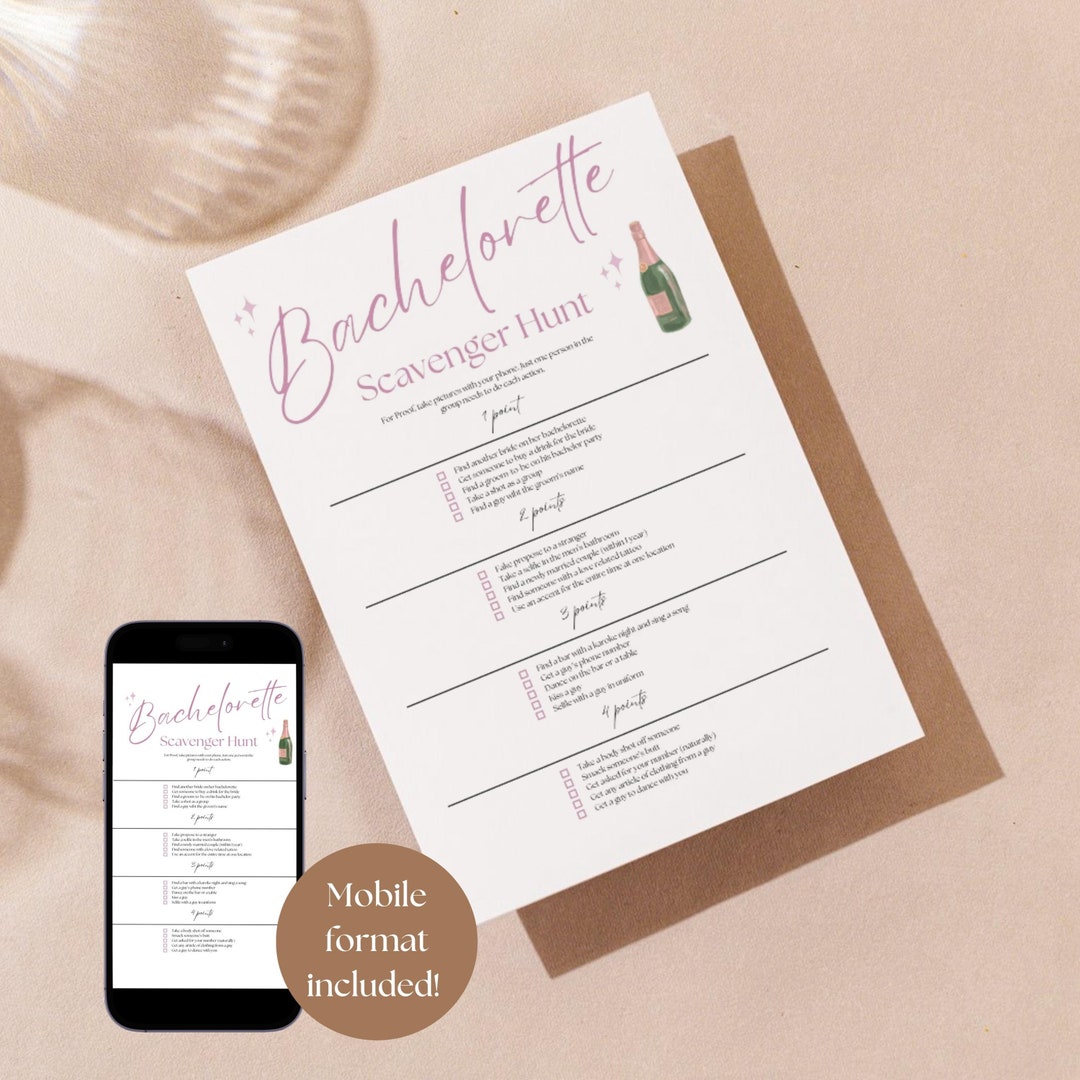 Bachelorette
Scavenger Hunt
For Proof, take pictures with your phone. Just one person in the
group needs to do each action.
1 point
Find another bride on her bachelorette
Get someone to buy a drink for the bride
Find a groom-to-be on his bachelor party
Take a shot as a group
Find a guy wiht the groom's name
2 points
Fake propose to a stranger
Take a selfie in the men's bathroom
Find a newly married couple (within 1 year)
Find someone with a love related tattoo
Use an accent for the entire time at one location
3 points
Find a bar with a karoke night and sing a song
Get a guy's phone number
Dance on the bar or a table
Kiss a guy
Selfie with a guy in uniform
4 points
Take a body shot off someone
Smack someone's butt
Get asked for your number (naturally)
Get any article of clothing from a guy
Get a guy to dance with you
Bachelorette
Scavenger Hunt
For Proof, take pictures with your phone. Just one person in the
group needs to do each action.
1 point
Find another bride on her bachelorette
Get someone to buy a drink for the bride
Find a groom-to-be on his bachelor party
Take a shot as a group
Find a guy wiht the groom's name
2 points
Fake propose to a stranger
Take a selfie in the men's bathroom
Find a newly married couple (within 1 year)
Find someone with a love related tattoo
Use an accent for the entire time at one location
3 points
Find a bar with a karoke night and sing a song
Get a guy's phone number
Dance on the bar or a table
Kiss a guy
Selfie with a guy in uniform
4 points
Take a body shot off someone
Smack someone's butt
Get asked for your number (naturally)
Get any article of clothing from a guy
Get a guy to dance with you
Mobile
format
included!